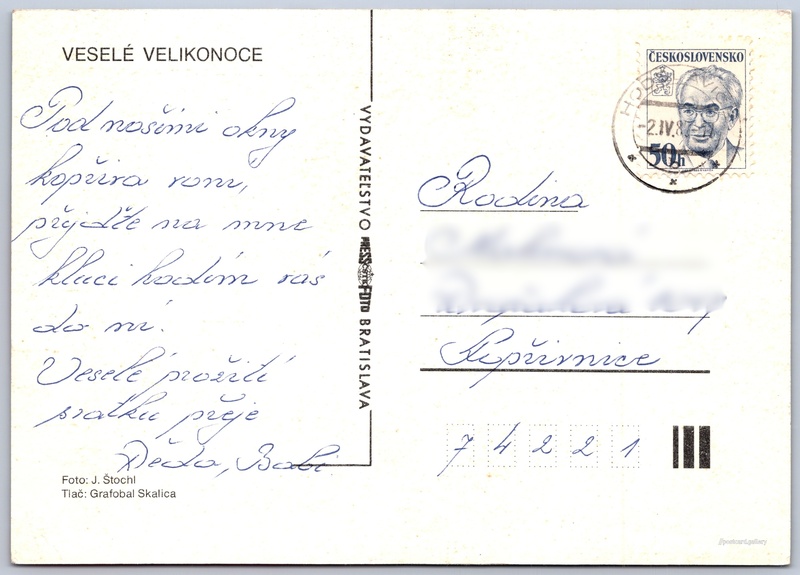 VESELÉ VELIKONOCE
Pod našimi okny
kopřiva voní,
přijďte na mne
kluci hodím vás
do ní.
Veselé prožití
svátků přeje
Děda, Babi.
Foto: J. Štochl
Tlač: Grafobal Skalica
VYDAVATEĽSTVO PRESSFOTO BRATISLAVA
ČESKOSLOVENSKO
50h
-2.IV.8
Rodina
Kopřivnice
74221